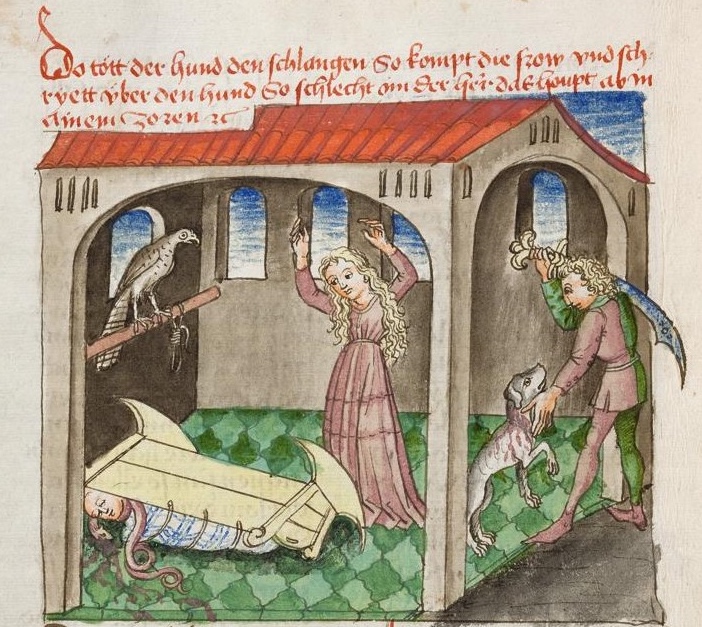 Do tött der hund den schlangen So kompt die frow vnd sch
ryett v̈ber den hund So schlecht im der herr das houpt ab in
ainem zoren ꝛc